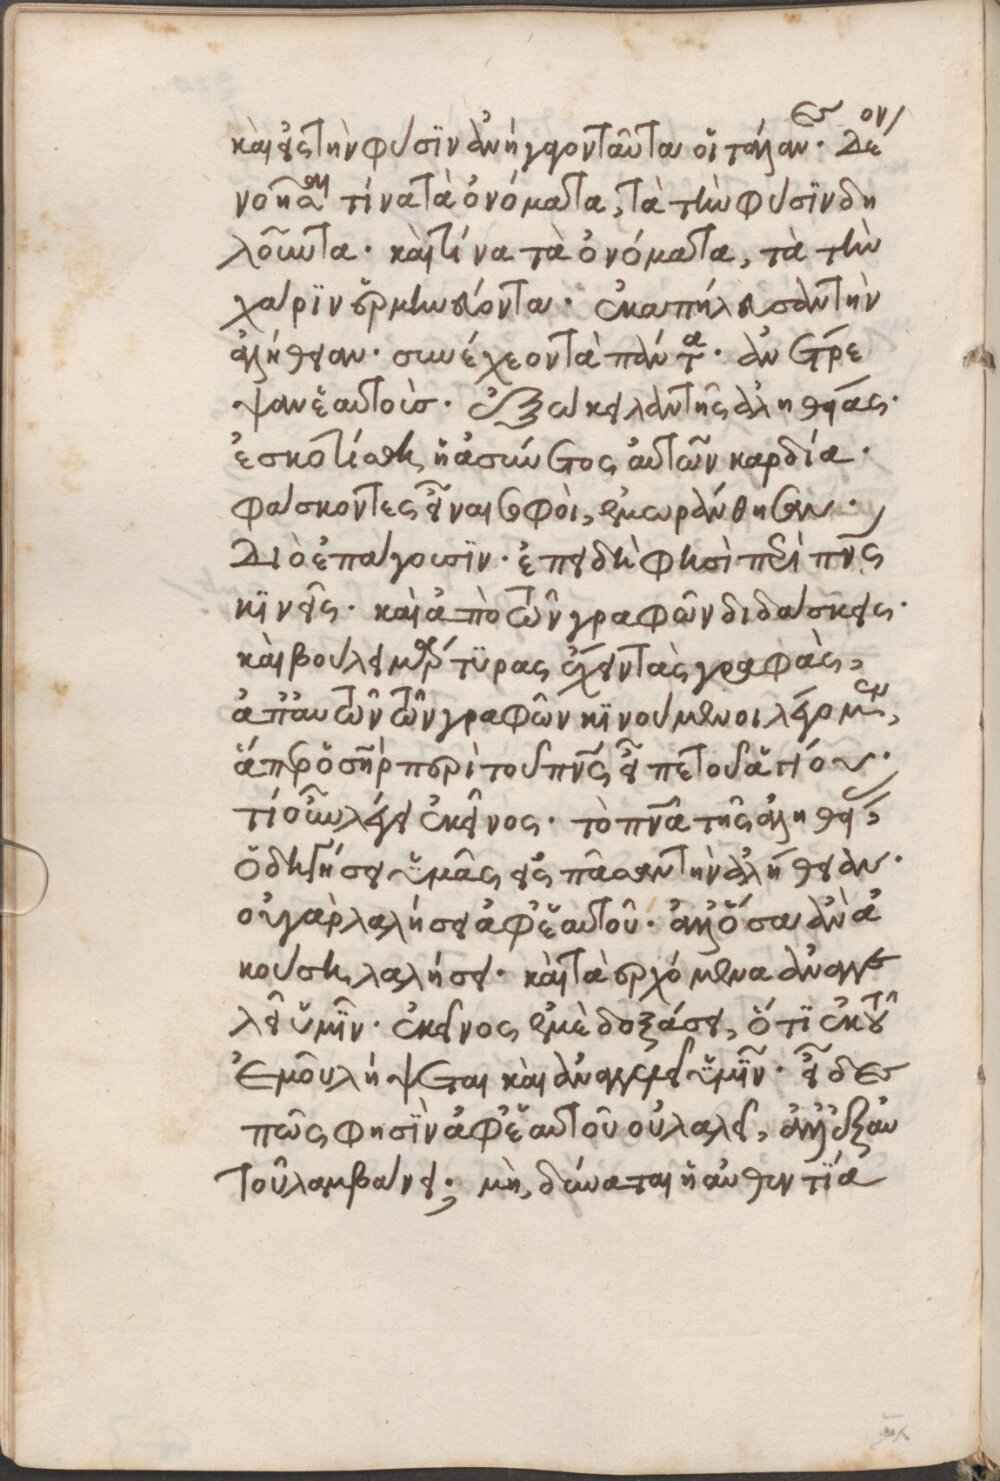 καὶ εἰς τὴν φύσϊν ἀνήγαγον ταῦτα οἱ τάλαν· δέον
νοῆσαι τίνα τὰ ὀνόματα, τὰ τὴν φύσϊν δη
λοῦντα· καὶ τίνα τὰ ὀνόματα, τὰ τὴν
χάρϊν ἑρμηνεύοντα· ἐκαπήλευσαν τὴν
ἀλήθειαν· συνέχεον τὰ πάντα· ἀνστρε
ψαν ἑαυτοὺσ· ἔξω κειλαν τῆς ἀληθείας·
ἐσκοτίσθη ἡ ἀσύνετος αὐτῶν καρδία·
φάσκοντες εἶναι σοφοὶ, ἐμωράνθησαν·
Διὸ ἐπάγουσϊν· ἐπειδὴ φησὶ περὶ πνς
κϊνεῖς· καὶ ἀπὸ τῶν γραφῶν διδάσκεις·
καὶ βούλει μάρτϋρας ἔχειν τὰς γραφὰς,
ἀπ' αὐτῶν τῶν γραφῶν κϊνούμενοι λέγομεν,
ἅπερ ὁ σηρ περὶ τοῦ πνς εἶπε τοῦ ἁγίου·
τί οὖν λέγει ἐκεῖνος· τὸ πνα τῆς ἀληθείας,
ὁδηγήσει ὑμᾶς εἰς πᾶσαν τὴν ἀλήθειαν·
οὐ γὰρ λαλήσει ἀφ' ἑαυτοῦ· ἀλλ' ὅσα ἀν ἀ
κούσῃ, λαλήσει· καὶ τὰ ἐρχόμενα ἀναγγε
λεῖ ὑμῖν· ἐκεῖνος ἐμὲ δοξάσει, ὅτϊ ἐκ τοῦ
ἐμοῦ λήψεται καὶ ἀναγγελεῖ ὑμῖν· εἶδες
πῶς φησϊν ἀφ' ἑαυτοῦ οὐ λαλεῖ, ἀλλ' ἐξ αὐ
τοῦ λαμβάνει; μὴ δύναται ἡ αὐθεντϊά